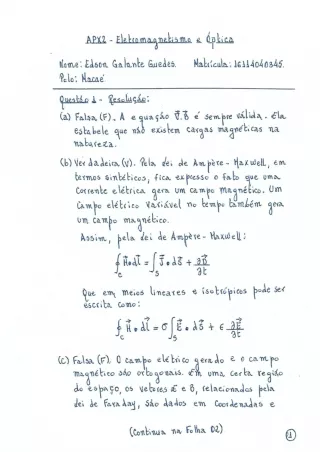 APX2 - Eletromagnetismo e Óptica
Nome: Edson Galante Guedes. Matrícula: 16114040345.
Polo: Macaé
Questão 1 - Resolução:
(a) Falsa (F). A equação ∇⃗.B⃗ é sempre válida. Ela
estabele que não existem cargas magnéticas na
natureza.
(b) Verdadeira (V). Pela Lei de Ampère-Maxwell, em
termos sintéticos, fica expresso o fato que uma
corrente elétrica gera um campo magnético. Um
Campo elétrico variável no tempo também gera
um campo magnético.
Assim, pela Lei de Ampère-Maxwell:
∮_C H⃗•dl⃗ = ∫_S J⃗•dS⃗ + ∂D⃗/∂t
Que em meios lineares e isotrópicos pode ser
escrita como:
∮_C H⃗•dl⃗ = σ∫_S E⃗•dS⃗ + ϵ ∂E⃗/∂t
(C) Falsa (F). O campo elétrico gerado e o campo
magnético são ortogonais. Em uma certa região
do espaço, os vetores E e B, relacionados pela
Lei de Faraday, são dados em Coordenadas e
(Continua na Folha 02)
1